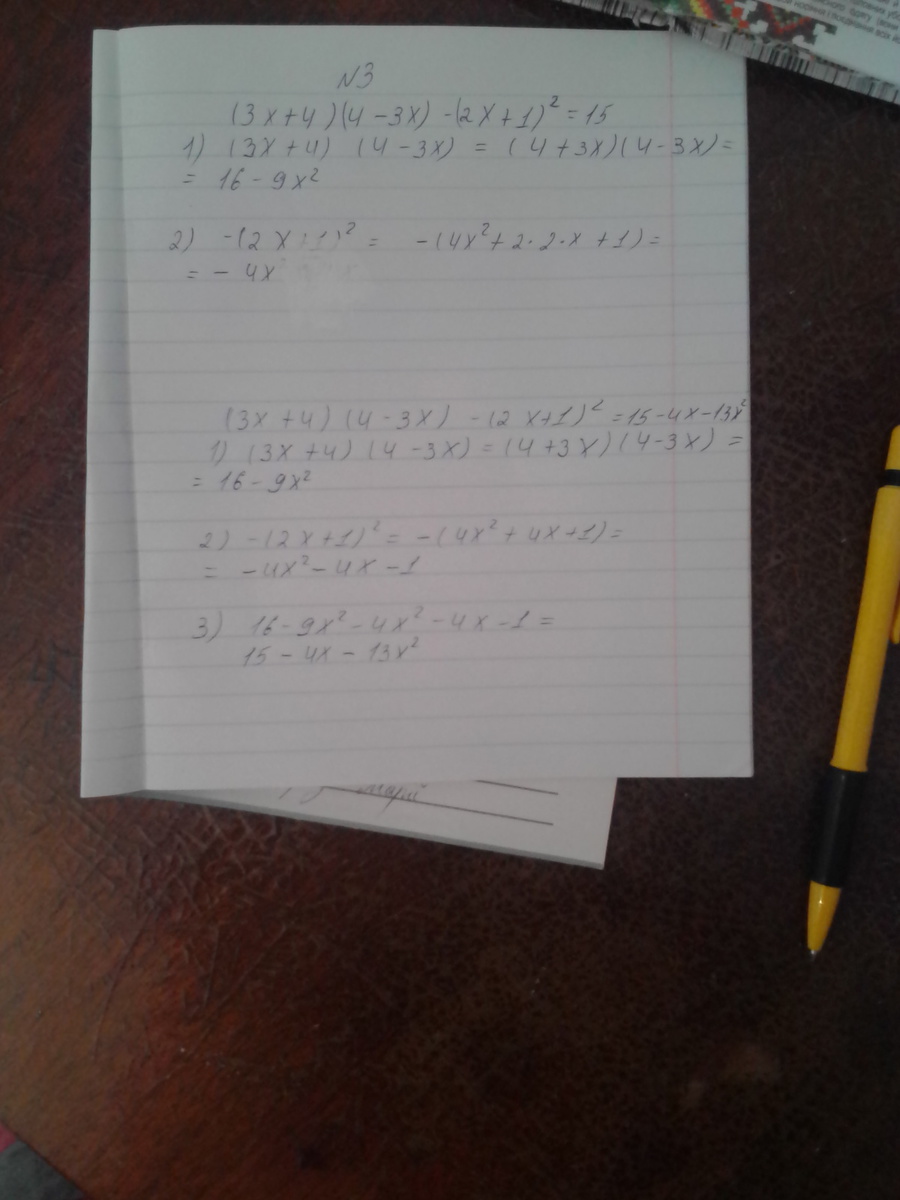 N3
(3x+4)(4-3x) -(2x+1)² = 15
1) (3x+4) (4-3x) = (4+3x)(4-3x) =
= 16 - 9x²
2) -(2x+1)² = -(4x²+2·2·x +1) =
= - 4x²
(3x+4) (4-3x) -(2x+1)² = 15-4x-13x²
1) (3x+4) (4-3x) = (4+3x) (4-3x) =
= 16 - 9x²
2) -(2x+1)² = -(4x² + 4x+1) =
= -4x² - 4x -1
3) 16 - 9x² - 4x² - 4x -1 =
15 - 4x - 13x²